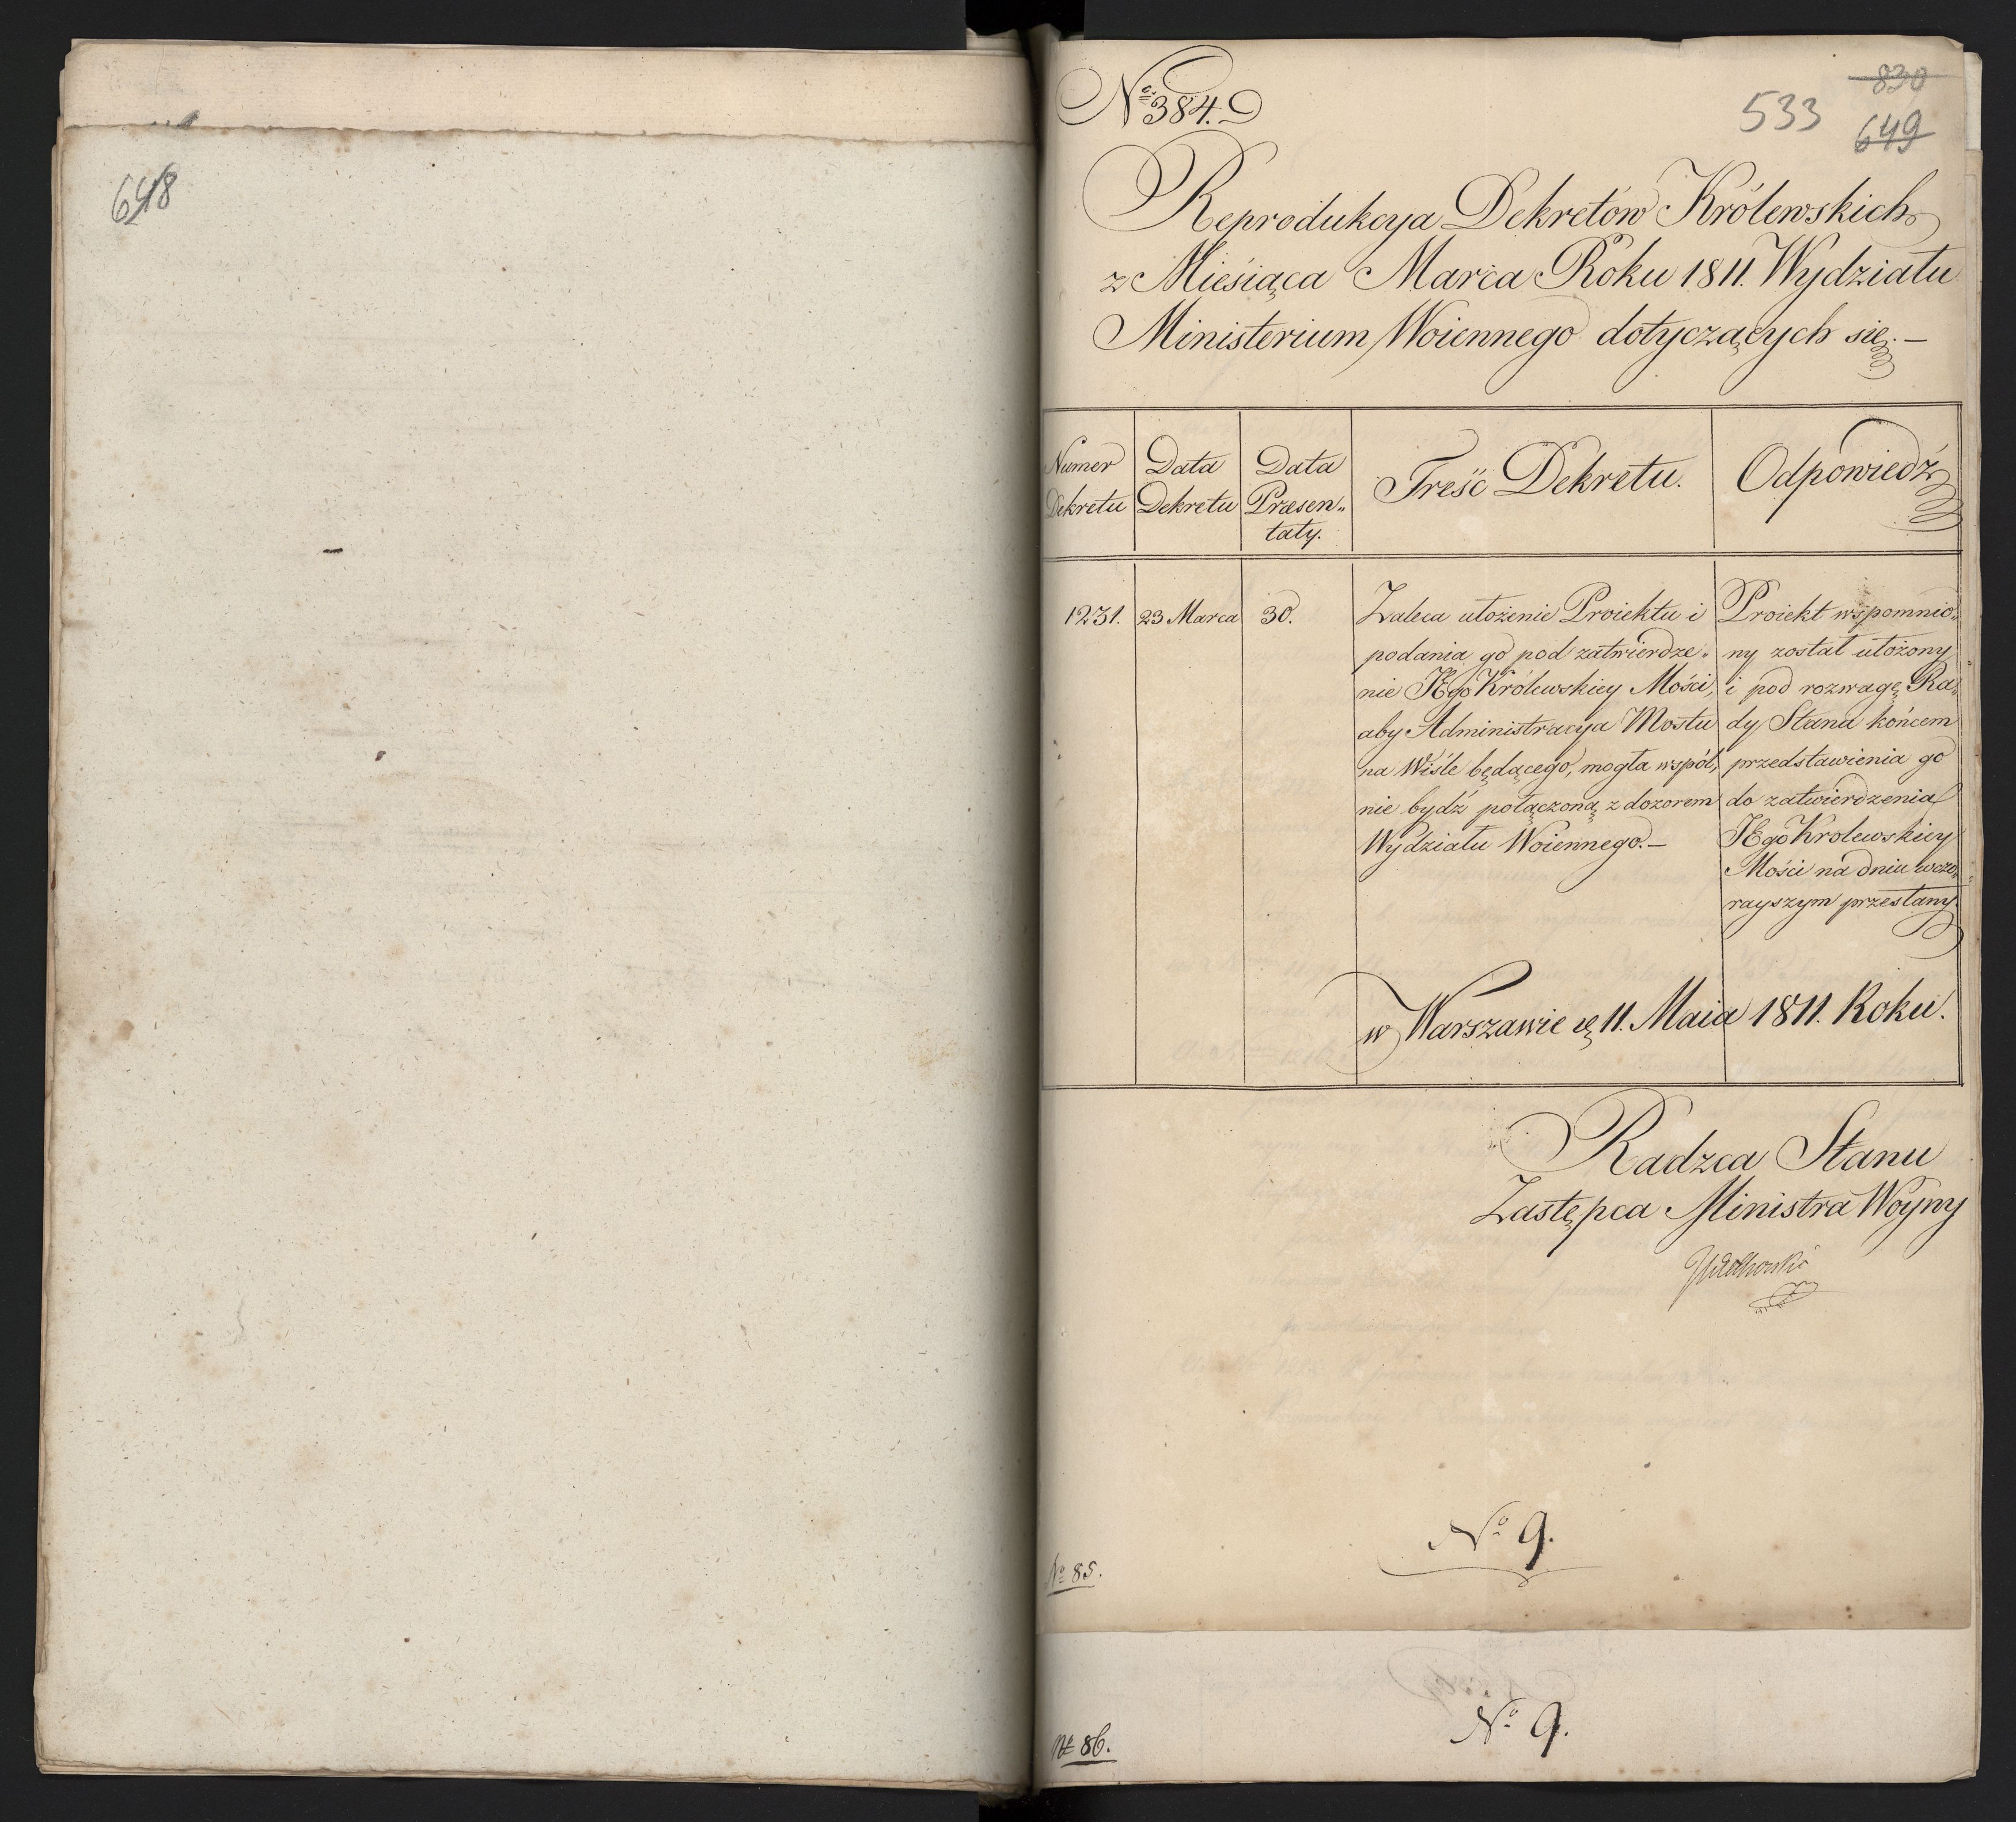 648
No 384.
830
533
649
Reprodukcya Dekretów Królewskich
z Miesiąca Marca Roku 1811. Wydziału
Ministerium Woiennego dotyczących się. –
Numer Dekretu
Data Dekretu
Data Præsen„
taty.
Treść Dekretu.
Odpowiedź
1231.
23 Marca
30.
Zaleca ułożenie Proiektu i
podania go pod zatwierdze„
nie JEgo Królewskiey Mości,
aby Administracya Mostu
na Wiśle będącego, mogła wspól„
nie bydź połączoną z dozorem
Wydziału Woiennego. –
Proiekt wspomnio„
ny został ułożony
i pod rozwagę Ra„
dy Stanu końcem
przedstawienia go
do zatwierdzenia
JEgo Krolewskiey
Mości na dniu wczo„
rayszym przesłany.
w Warszawie d. 11. Maia 1811. Roku.
Radzca Stanu
Zastępca Ministra Woyny
No 9.
No 85.
No 9.
No 86.